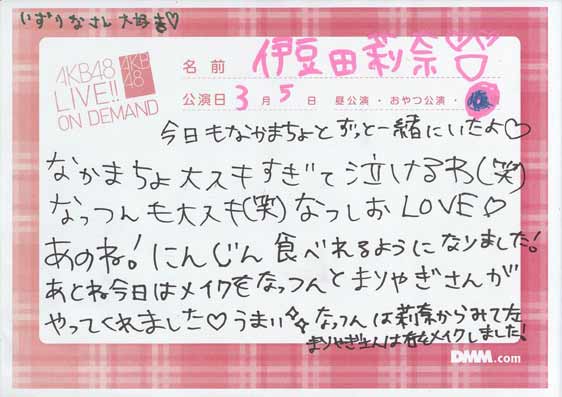 いずりなさん大好き♡
AKB48
LIVE!!
ON DEMAND
AKB
48
名前 伊豆田莉奈
公演日 3月5日 昼公演・おやつ公演・
今日もなかまちょとずっと一緒にいたよ♡
なかまちょ大スキすぎて泣けるわ(笑)
なっつんも大スキ(笑)なつしお LOVE♡
あのね!にんじん食べれるようになりました!
あとね今日はメイクをなっつんとまりやぎさんが
やってくれました♡うまい なっつんは莉奈からみて左
まりやぎさんは右をメイクしました!
DMM.com